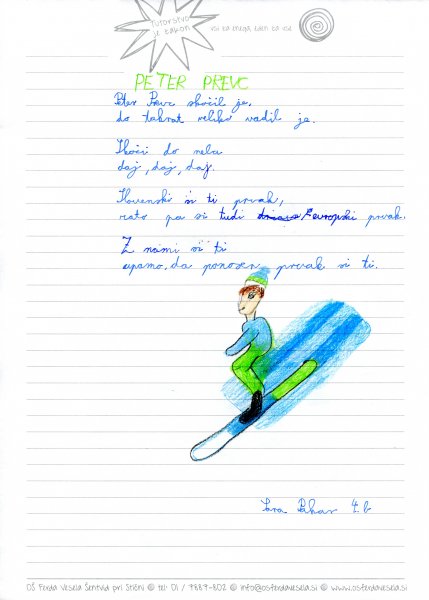 Tutorstvo
je zakon
vsi za enega, eden za vse
PETER PREVC
Peter Prevc skočil je,
do takrat veliko vadil je.
Skoči do neba
daj, daj, daj.
Slovenski si ti prvak,
zato pa si tudi evropski prvak.
Z nami si ti
upamo, da ponosen prvak si ti.
Sara 4. b
OŠ Ferda Vesela Šentvid pri Stični @ tel: 01 / 7889-802 @ info@osferdavesela.si @ www.osferdavesela.si